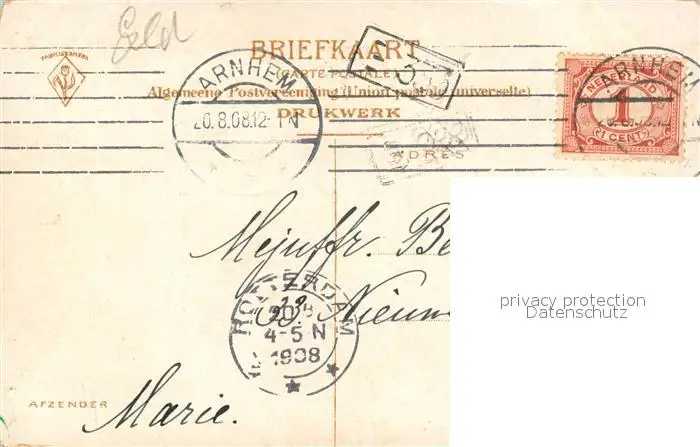 Geld
FABRIEKSMERK
BRIEFKAART
(CARTE POSTALE)
Algemeene Postvereeniging (Union postale universelle)
DRUKWERK
ARNHEM
20.8.08.12-1N
NEDERLAND
1
1 CENT
ARNHEM
ADRES
Mejuffr. Be
Nieuw
20.8
4-5 N
1908
AFZENDER
Marie.
privacy protection
Datenschutz